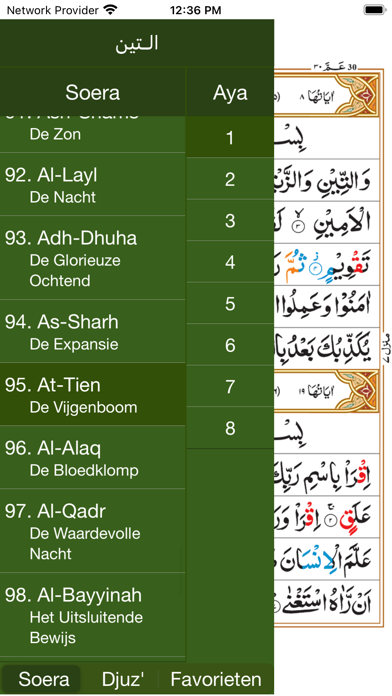 Network Provider 12:36 PM
الـتين
Soera Aya
91. Ash-Shams
De Zon
92. Al-Layl
De Nacht
93. Adh-Dhuha
De Glorieuze
Ochtend
94. As-Sharh
De Expansie
95. At-Tien
De Vijgenboom
96. Al-Alaq
De Bloedklomp
97. Al-Qadr
De Waardevolle
Nacht
98. Al-Bayyinah
Het Uitsluitende
Bewijs
1
2
3
4
5
6
7
8
عَمَّ ٣٠ 30
اٰیَاتُهَا ٨
بِسْـ
وَالتِّيْنِ وَالزَّيْـ
الْاَمِيْنِ ۙ﴿۳﴾
تَقْوِيْمٍ ۫﴿۴﴾ ثُمَّ
اٰمَنُوْا وَعَمِلُوا
يُكَذِّبُكَ بَعْدُ بِالـ
منزل ٧
اٰیَاتُهَا ١٩
بِسْـ
اِقْرَاْ بِاسْمِ رَبِّكَ
عَلَقٍ ۚ﴿۲﴾ اِقْرَاْ وَرَ
عَلَّمَ الْاِنْسَانَ
اَنْ رَّاٰهُ اسْتَغْنٰى
Soera Djuz' Favorieten